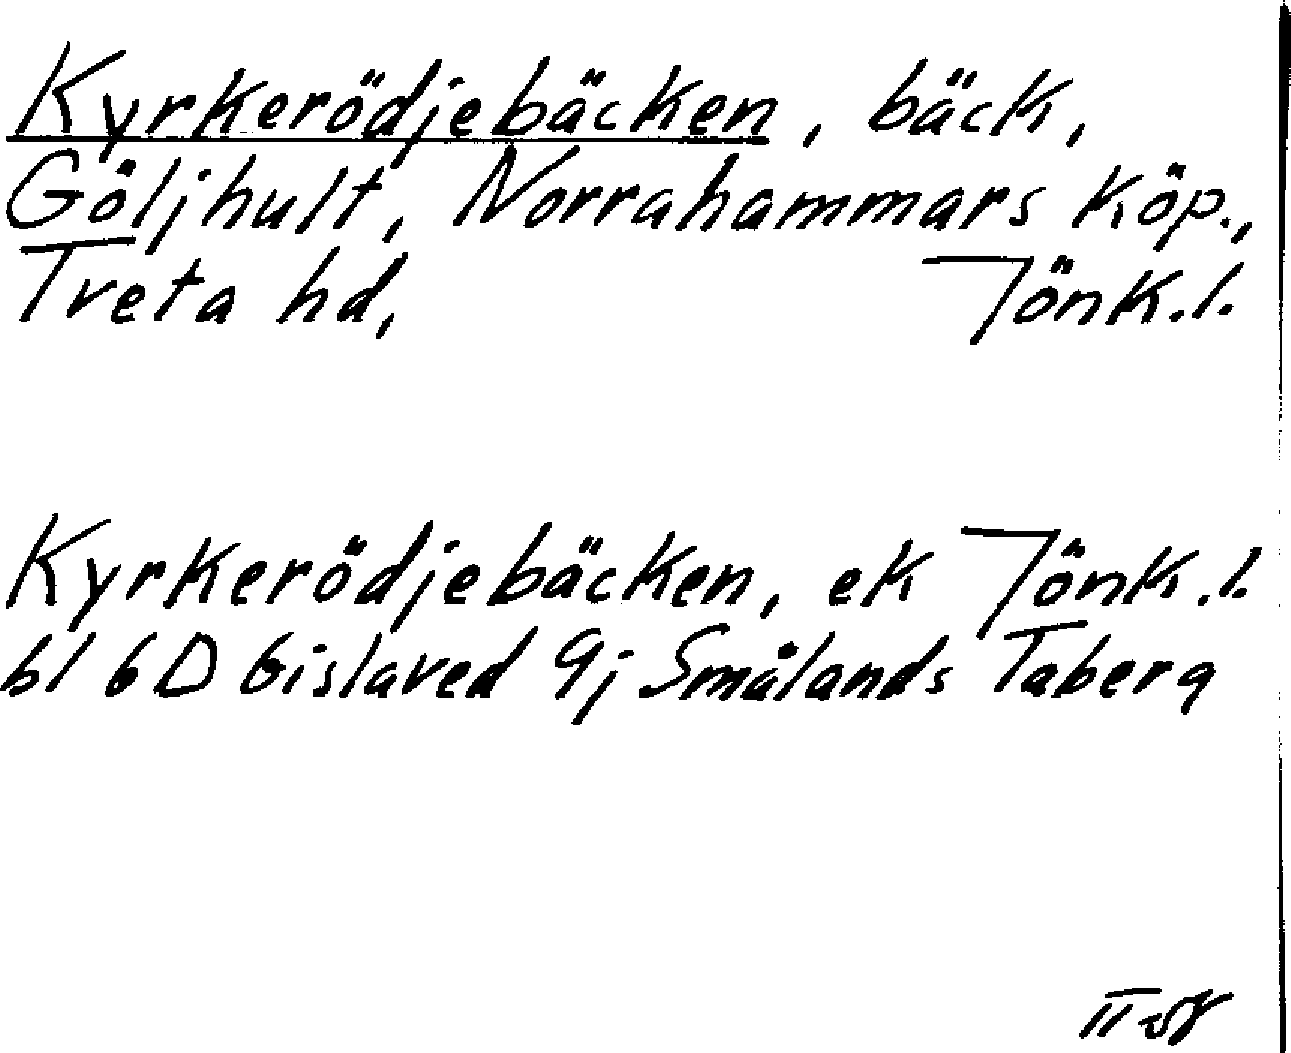 Kyrkerödjebäcken, bäck,
Göljhult, Norrahammars köp.,
Tveta hd, Jönk.l.
Kyrkerödjebäcken, ek Jönk.l.
bl 6D Gislaved 9j Smålands Taberg